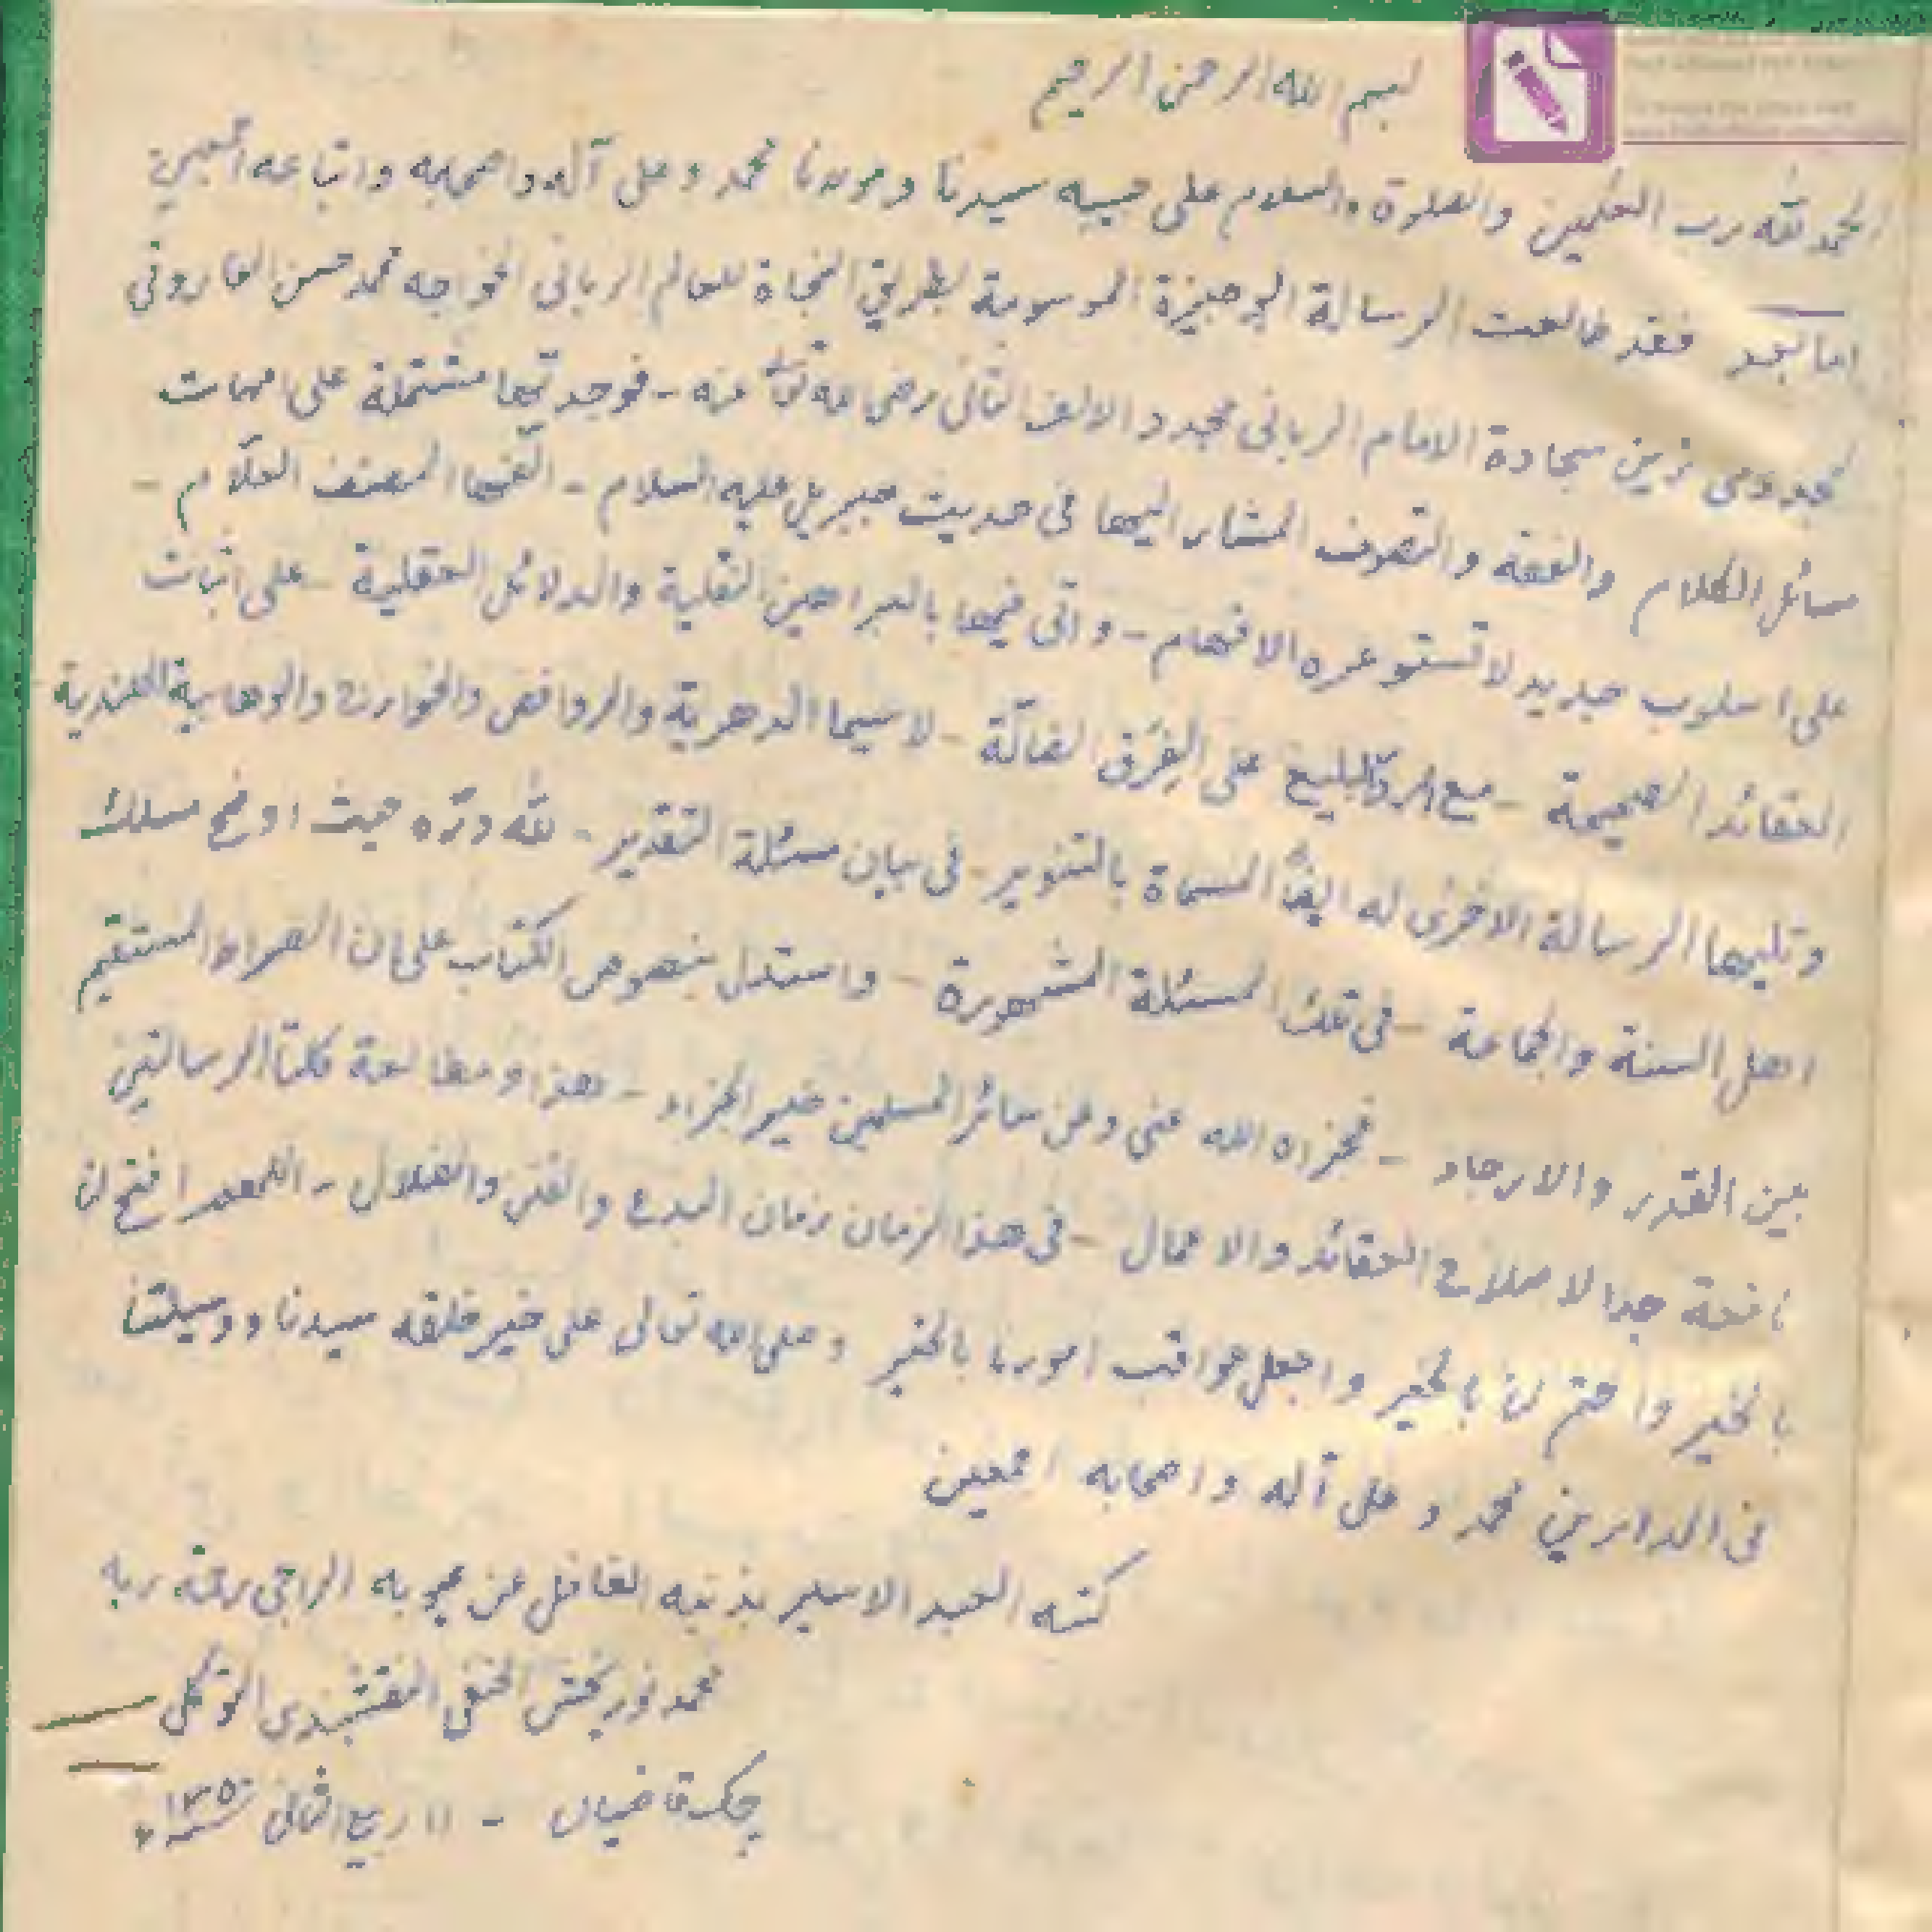 بسم الله الرحمن الرحيم
الحمد لله رب العلمين والصلوة والسلام على حبيبه سيدنا ومولانا محمد وعلى آله واصحابه واتباعه اجمعين
اما بعد فقد طالعت الرسالة الوجيزة الموسومة بطريق النجاة للعالم الربانى الخواجه محمد حسن الفاروقى
المجددى زين سجادة الامام الربانى مجدد الالف الثانى رضى الله تعالى عنه - فوجدتها مشتملة على امهات
مسائل الكلام والفقه والتصوف المشار اليها فى حديث جبريل عليه السلام - الفها المصنف العلّام -
على اسلوب جديد لا تستوعره الافهام - واتى فيها بالبراهين النقلية والدلائل العقلية - على اثبات
العقائد الصحيحة - مع الردّ البليغ على الفِرَق الضالّة - لا سيما الدهرية والروافض والخوارج والوهابية الهندية
وتليها الرسالة الاخرى له ايضًا المسماة بالتنوير - فى بيان مسئلة التقدير - لله درّه حيث اوضح مسلك
اهل السنة والجماعة - فى تلك المسئلة المشهورة - واستدل بنصوص الكتاب على ان الصراط المستقيم
بين القدر والارجاء - فجزاه الله عنى وعن سائر المسلمين خير الجزاء - هذا ومطالعة كلتا الرسالتين
نافعة جدا لاصلاح العقائد والاعمال - فى هذا الزمان زمان البدع والفتن والضلال - اللهم افتح لنا
بالخير واختم لنا بالخير واجعل عواقب امورنا بالخير وصلى الله تعالى على خير خلقه سيدنا ووسيلتنا
فى الدارين محمد وعلى آله واصحابه اجمعين
كتبه العبد الاسير بذنبه الغافل عن عيوبه الراجى رحمة ربه
محمد نور بخش الحنفى النقشبندى التوكلى
چک قاضیاں - ۱۱ ربيع الثانى ۱۳۵۰ ھ